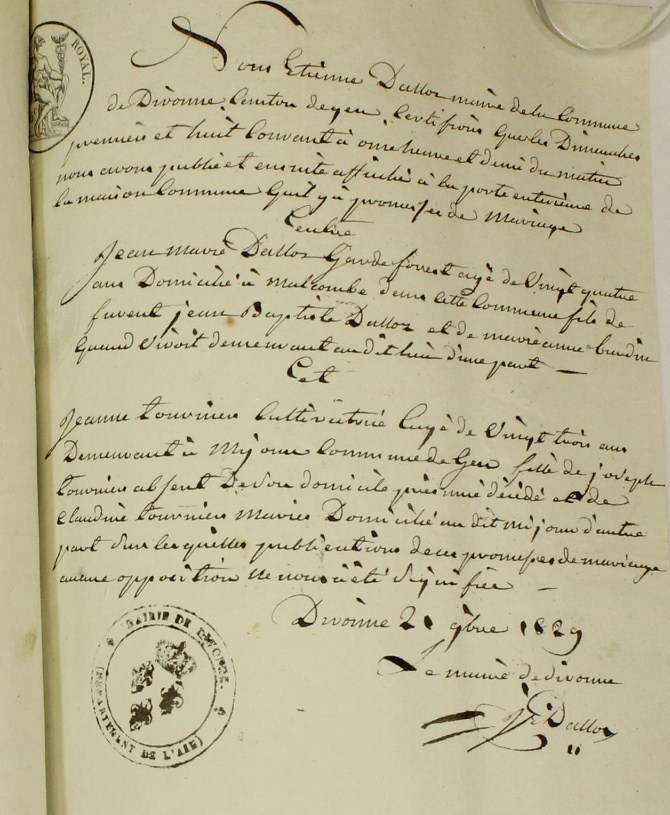 ROYAL.
Nous Etienne Dalloz maire de la Commune
de Divonne Canton de gex Certifions que les Dimanches
premiers et huit Courant à onze heure et demi du matin
nous avons publié et ensuite affiché à la porte exterieure de
la maison Commune Quil y à promesse de Mariage
Entre
Jean marie Dalloz Garde forest agé de Vingt quatre
ans Domicilié à malcombe dans cette Commune fils de
furent jean Baptiste Dalloz et de marie anne burdin
Quand vivoit demeurant au dit lieu d'une part —
Et
Jeanne tournier Cultivatrice agé de Vingt trois ans
Demeurant à Mijoux Commune de Gex fille de joseph
tournier absent De son domicile présumé décédé et de
Claudine tournier Mariés Domicilié au dit mijoux d'autre
part sur lesquelles publications deux promesses de mariage
aucune opposition ne nous a été signifiée —
Divonne 21 9bre 1829
Le maire de divonne
Dalloz
MAIRIE DE DIVONNE.
(DÉPARTEMENT DE L'AIN)